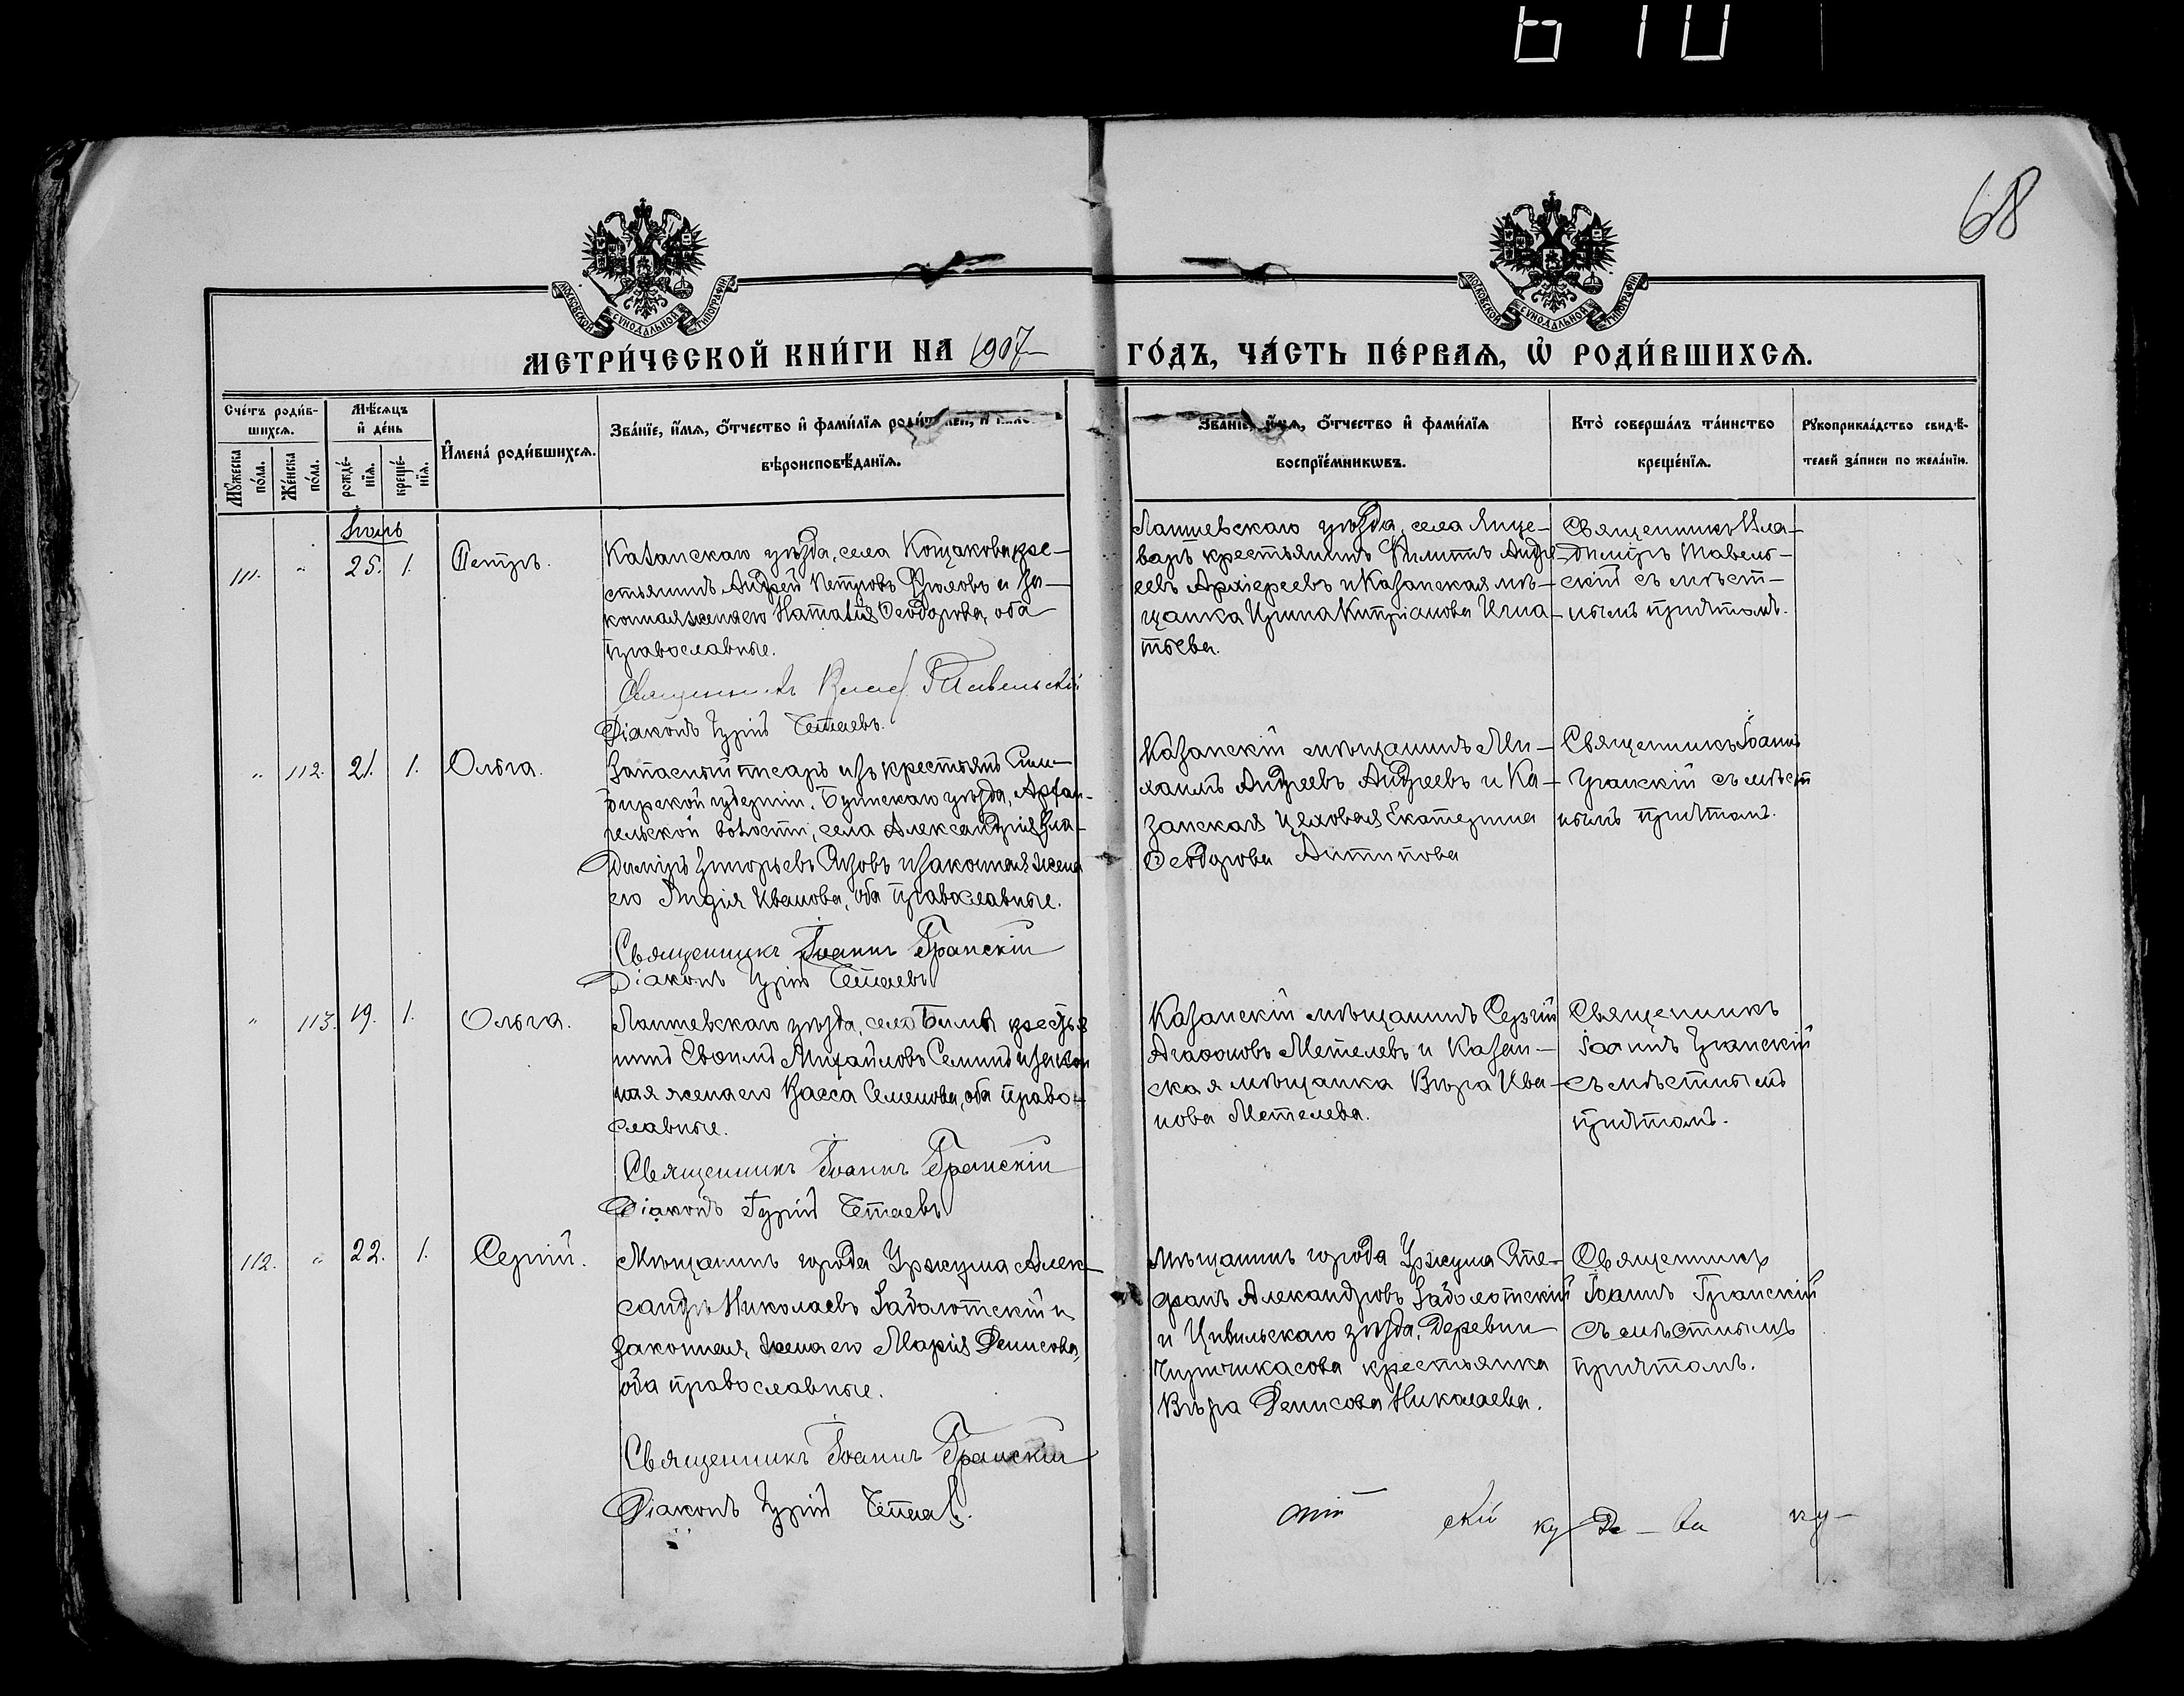 610
68
МОСКОВСКОЙ СУНОДАЛЬНОЙ ТИПОГРАФІИ
МОСКОВСКОЙ СУНОДАЛЬНОЙ ТИПОГРАФІИ
МЕТРИ́ЧЕСКОЙ КНИ́ГИ НА 1907 ГО́ДЪ, ЧА́СТЬ ПЕ́РВАѦ, Ѡ РОДИ́ВШИХСѦ.
Сче́тъ роди́в-
шихсѧ.
Мꙋ́жеска
по́ла.
Же́нска
по́ла.
Мѣ́сѧцъ
и҆ де́нь
рожде́-
нїѧ.
креще́-
нїѧ.
И҆мена̀ роди́вшихсѧ.
Зва́нїе, и҆́мѧ, ѻ҆́тчество и҆ фами́лїѧ
вѣроисповѣ́данїѧ.
Зва́нїе, и҆́мѧ, ѻ҆́тчество и҆ фами́лїѧ
воспрїе́мникѡвъ.
Кто̀ соверша́лъ та́инство
креще́нїѧ.
Рꙋкоприкла́дство свидѣ́-
телей за́писи по жела́нїю.
111. " 25. 1. Петръ.
Казанскаго уѣзда, села Кощакова кре-
стьянинъ Андрей Петровъ Фроловъ и за-
конная жена его Наталія Ѳеодорова, оба
православные.
Священникъ Влад. Тавельскій
Діаконъ Гурій Четаевъ.
Лаишевскаго уѣзда, села
крестьянинъ Филиппъ Андре-
евъ Архіереевъ и Казанская мѣ-
щанка Ирина Кипріанова Игна-
тьева.
Священникъ Вла-
димиръ Тавель-
скій съ мѣст-
нымъ причтомъ.
" 112. 21. 1. Ольга.
Запасный писарь изъ крестьянъ Сим-
бирской губерніи, Буинскаго уѣзда, Архан-
гельской волости, села Вла-
димиръ Григорьевъ и законная жена
его Лидія Иванова, оба православные.
Священникъ Іоаннъ Гранскій
Діаконъ Гурій Четаевъ
Казанскій мѣщанинъ Ми-
хаилъ Андреевъ Андреевъ и Ка-
занская цеховая Екатерина
Ѳеодорова Антипова
Священникъ Іоаннъ
Гранскій съ мѣст
нымъ причтомъ.
" 113. 19. 1. Ольга.
Лаишевскаго уѣзда, села крестья
нинъ Евѳимъ Михайловъ Семинъ и закон
ная жена его Васса Семенова, оба право-
славные.
Священникъ Іоаннъ Гранскій
Діаконъ Гурій Четаевъ
Казанскій мѣщанинъ Сергій
Агаѳоновъ Метелевъ и Казан-
ская мѣщанка Вѣра Ива-
нова Метелева.
Священникъ
Іоаннъ Гранскій
съ мѣстнымъ
причтомъ.
112. " 22. 1. Сергій.
Мѣщанинъ города Уржума Алек-
сандръ Николаевъ Заболотскій и
законная жена его Марія Денисова,
оба православные.
Священникъ Іоаннъ Гранскій
Діаконъ Гурій Четаевъ.
Мѣщанинъ города Уржума Сте-
фанъ Александровъ Заболотскій
и Цивильскаго уѣзда, деревни
Чиричкасова крестьянка
Вѣра Денисова Николаева.
Священникъ
Іоаннъ Гранскій
съ мѣстнымъ
причтомъ.